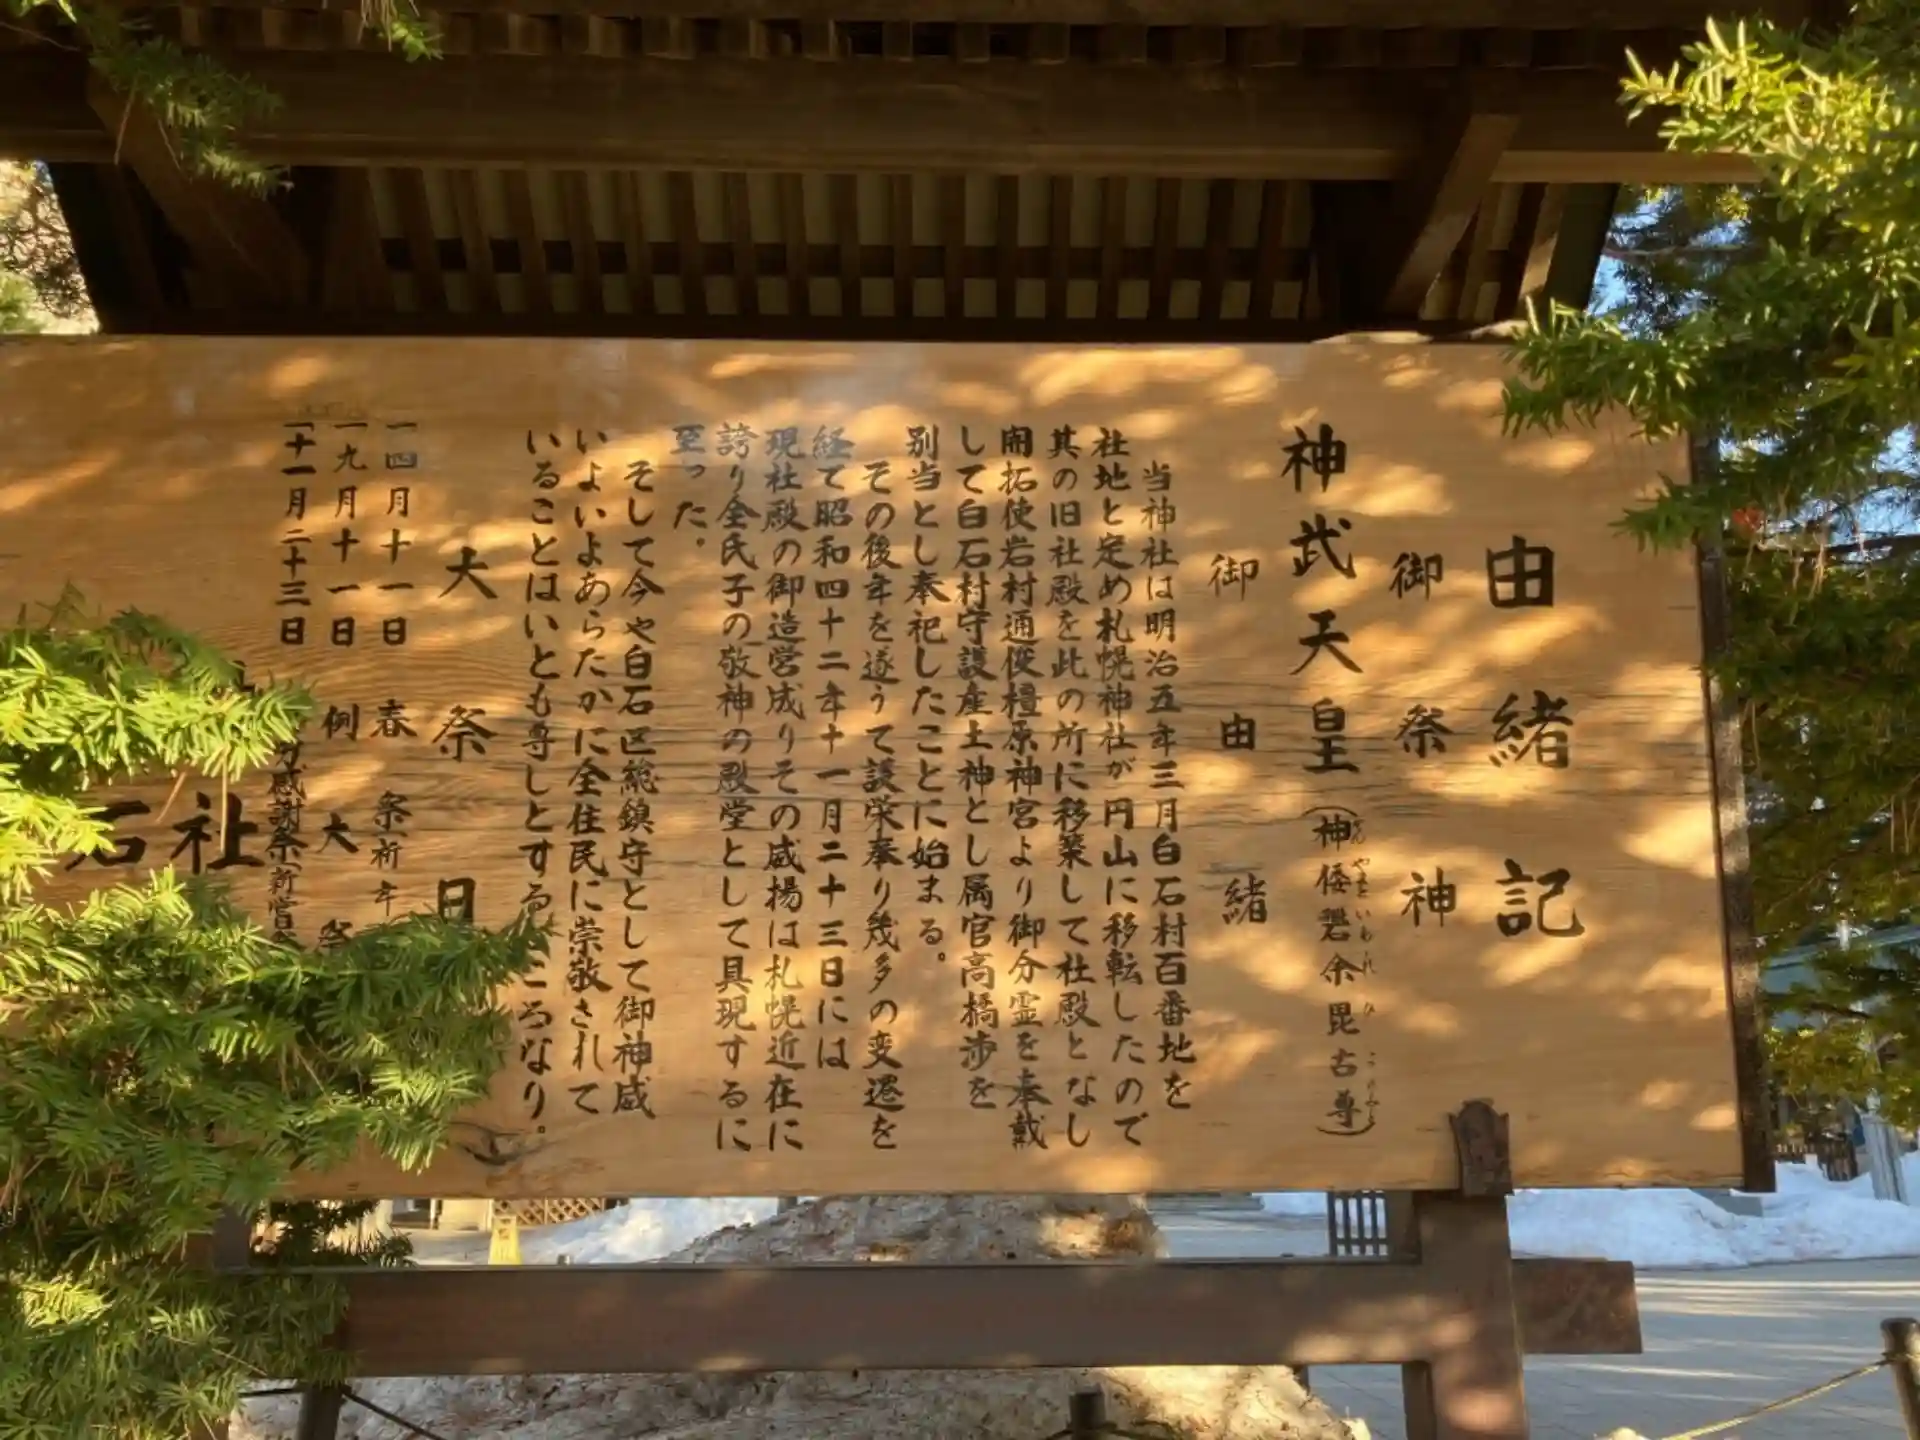 由緒記
御祭神
神武天皇（神倭磐余毘古尊）
御由緒
当神社は明治五年三月白石村百番地を
社地と定め札幌神社が円山に移転したので
其の旧社殿を此の所に移築して社殿となし
開拓使岩村通俊橿原神宮より御分霊を奉戴
して白石村守護産土神とし属官高橋渉を
別当とし奉祀したことに始まる。
その後年を遂うて護栄奉り幾多の変遷を
経て昭和四十二年十一月二十三日には
現社殿の御造営成りその威揚は札幌近在に
誇り全氏子の敬神の殿堂として具現するに
至った。
そして今や白石区総鎮守として御神威
いよいよあらたかに全住民に崇敬されて
いることはいとも尊しとするところなり。
大祭日
一四月十一日 春祭 祈年
一九月十一日 例大祭
一十一月二十三日 感謝祭 新嘗
社
石